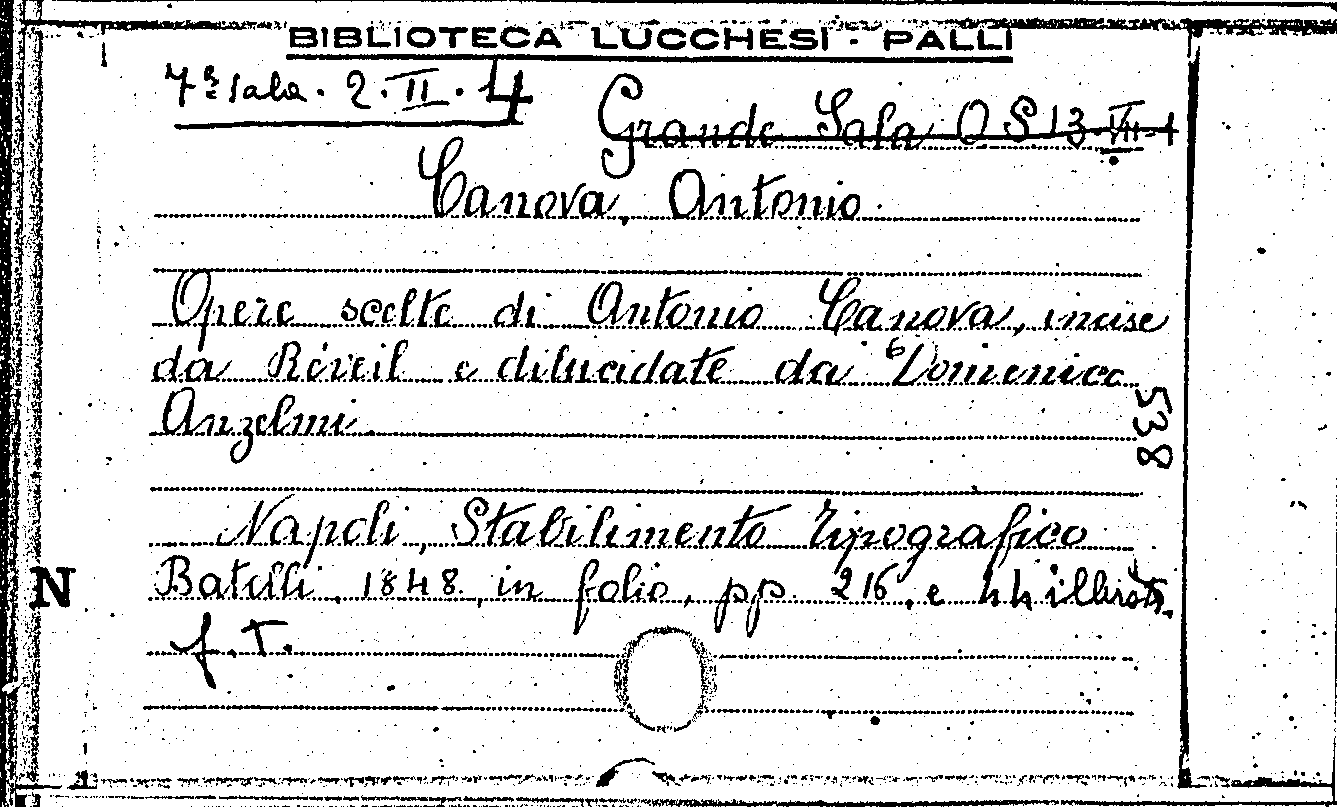 BIBLIOTECA LUCCHESI - PALLI
7ª Sala. 2. II. 4
Grande Sala O S 13-VII-1
Canova, Antonio.
Opere scelte di Antonio Canova, incise
da Réveil e dilucidate da Domenico
Anzelmi.
538
Napoli, Stabilimento Tipografico
N
Batelli, 1848, in folio, pp. 216, e 44 illustr.
f. T.